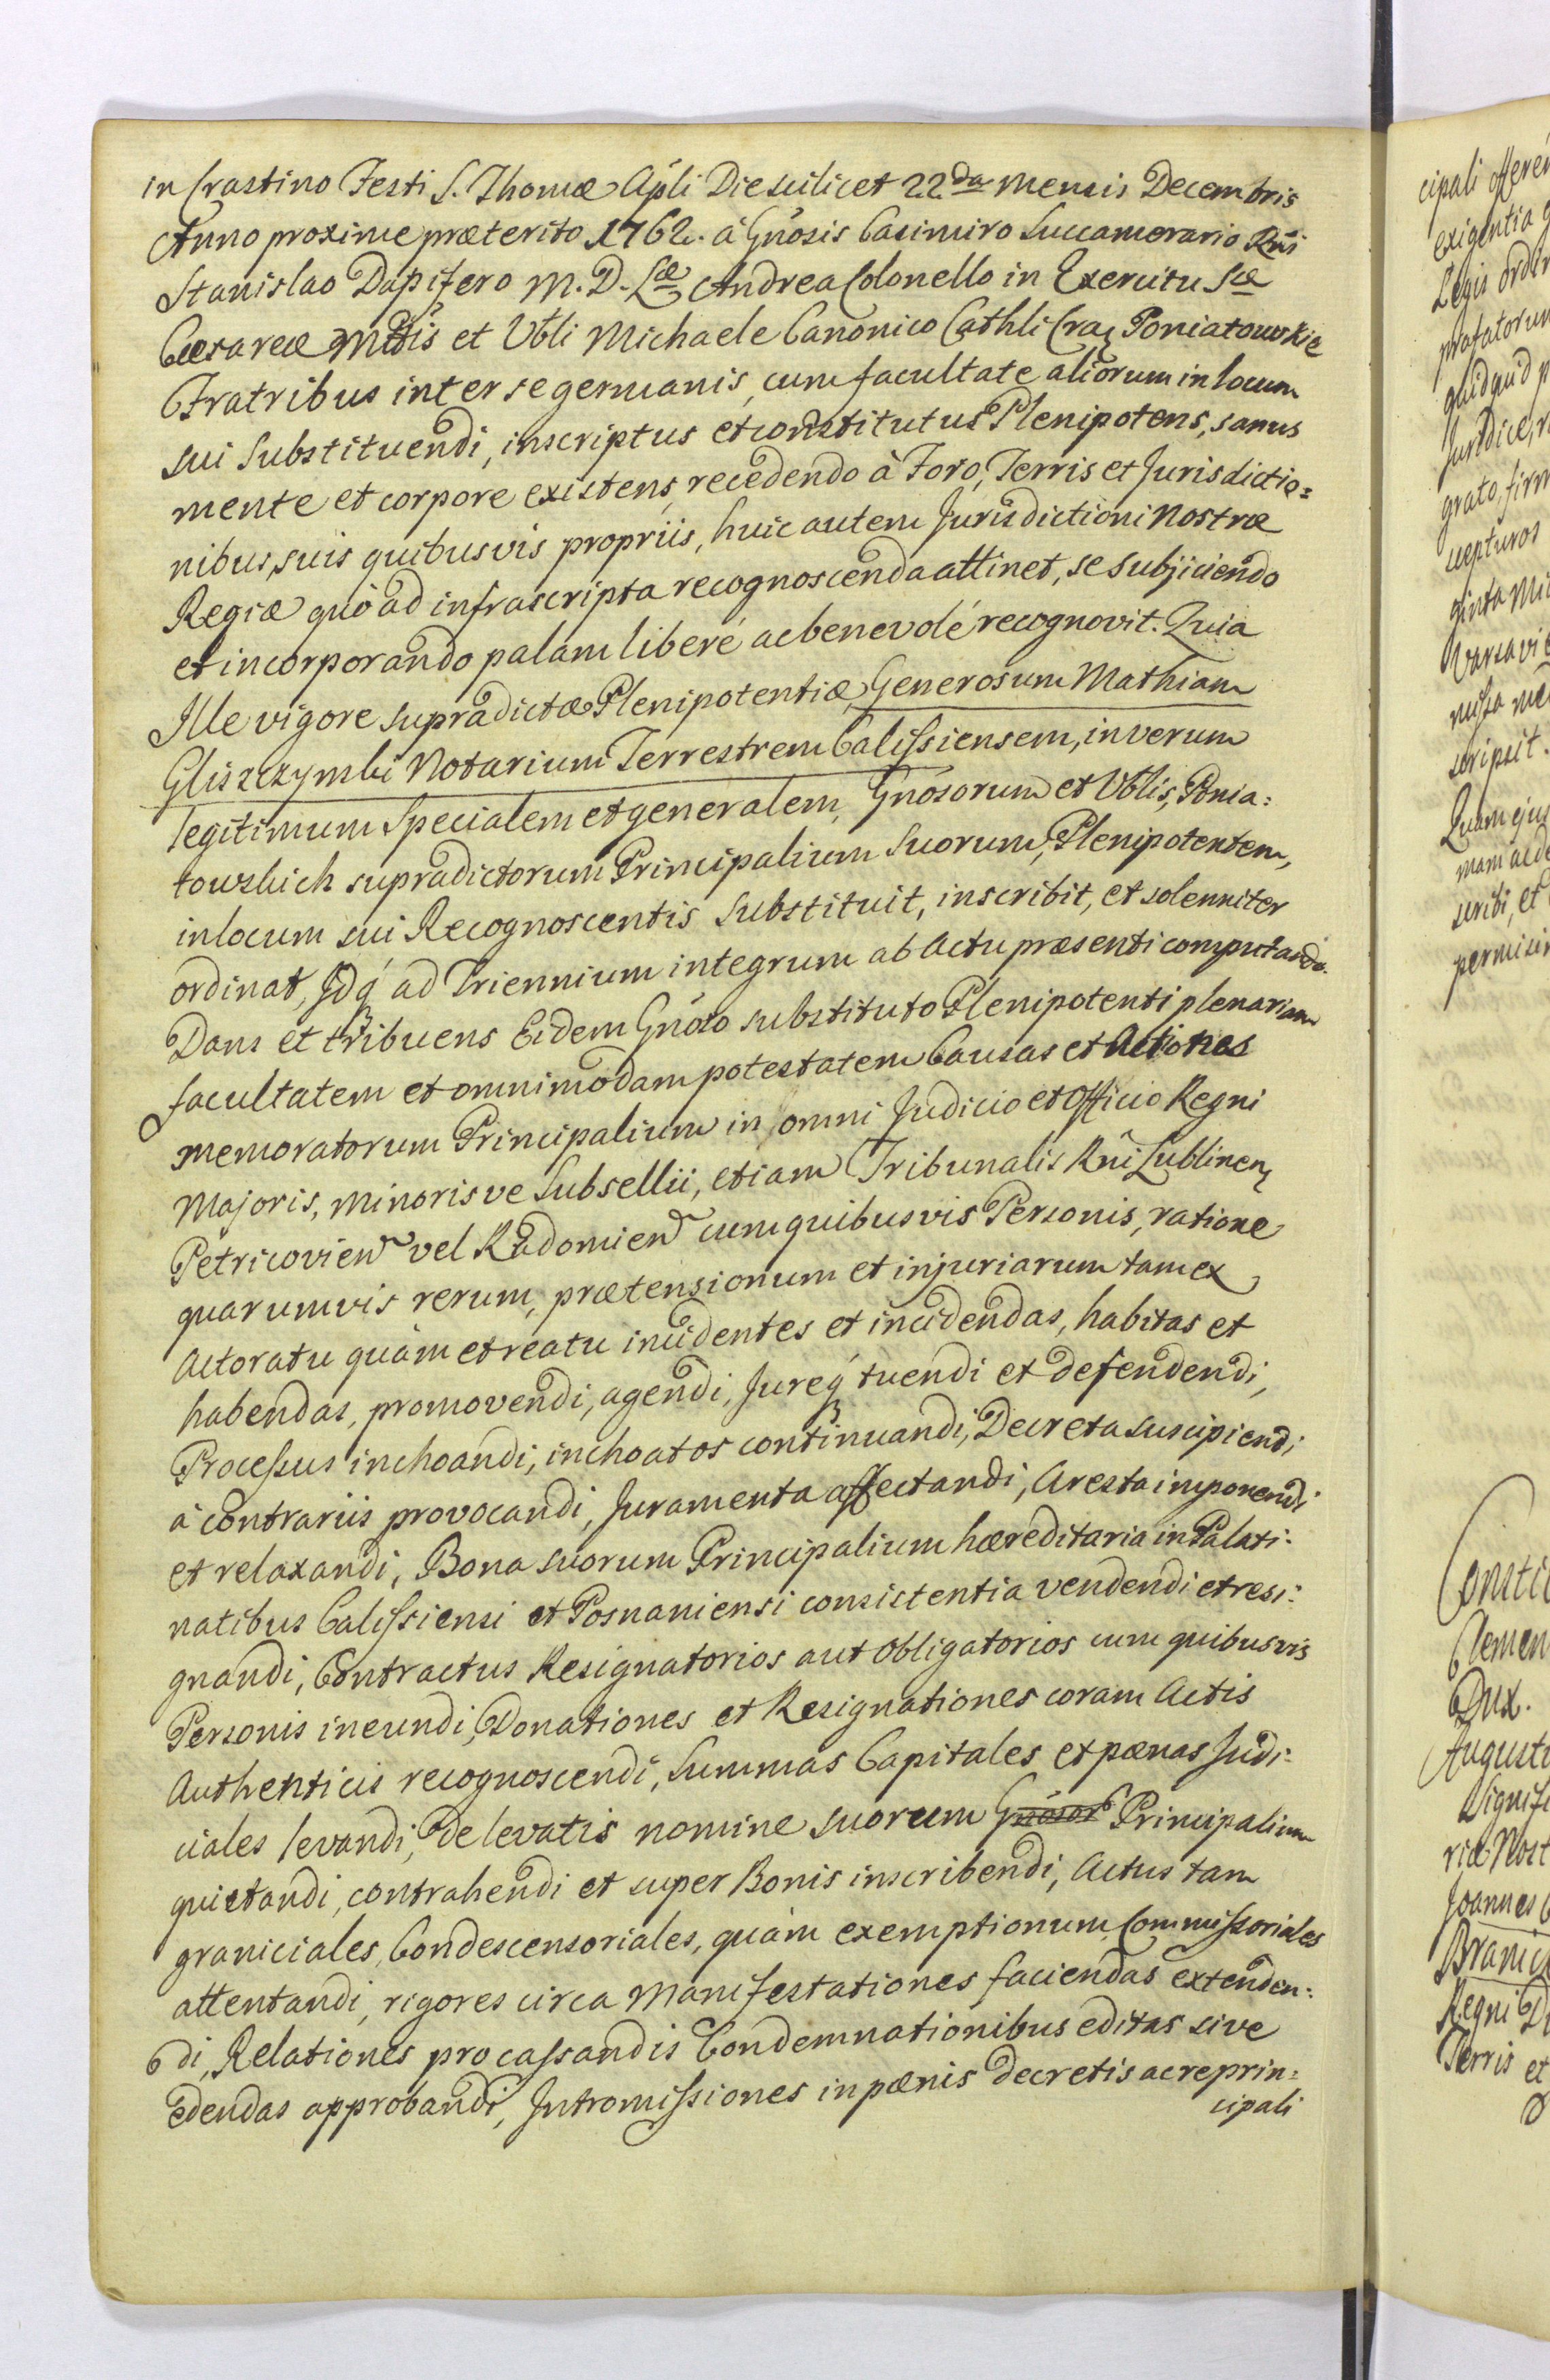 in Crastino Festi S. Thomæ Apli Die scilicet 22da mensis Decembris
Anno proxime præterito 1762. à Gnosis Casimiro Succamerario Rni
Stanislao Dapifero M. D. Læ Andrea Colonello in Exercitu Sæ
Cæsareæ Mttis et Vbli Michaele Canonico Cathli Crac Poniatowskie
Fratribus inter se germanis, cum facultate aliorum in locum
sui Substituendi, inscriptus et constitutus Plenipotens, sanus
mente et corpore existens, recedendo à Foro, Terris et Jurisdictio=
nibus, suis quibusvis propriis, huic autem Jurisdictioni Nostræ
Regiæ quò ad infrascripta recognoscenda attinet, se subjiciendo
et incorporando palam liberé ac benevolé recognovit. Quia
Ille vigore supradictæ Plenipotentiæ, Generosum Mathiam
Gliszczynski Notarium Terrestrem Calissiensem, in verum
legitimum Specialem et generalem, Gnosorum et Vblis, Ponia=
towskich supradictorum Principalium Suorum, Plenipotentem,
in locum sui Recognoscentis Substituit, inscribit, et solenniter
ordinat, Idq́ ad Triennium integrum ab Actu præsenti computando.
Dans et tribuens Eidem Gnoso substituto Plenipotenti plenariam
facultatem et omnimodam potestatem Causas et Actiones
memoratorum Principalium in omni Judicio et Officio Regni
Majoris, minorisve Subsellii, etiam Tribunalis Rni Lublinen
Petricovien vel Radomien cum quibusvis Personis, ratione
quarumvis rerum, prætensionum et injuriarum tam ex
Actoratu quàm et reatu incidentes et incidendas, habitas et
habendas, promovendi, agendi, Jureq́ tuendi et defendendi,
Processus inchoandi, inchoatos continuandi, Decreta suscipiendi
à contrariis provocandi, Juramenta affectandi, Aresta imponendi
et relaxandi, Bona suorum Principalium hæreditaria in Palati=
natibus Calissiensi et Posnaniensi consistentia vendendi et resi=
gnandi, Contractus Resignatorios aut obligatorios cum quibusvis
Personis ineundi, Donationes et Resignationes coram Actis
Authenticis recognoscendi, Summas Capitales et pænas Judi=
ciales levandi, de levatis nomine suorum Gnosor Principalium
quietandi, contrahendi et super Bonis inscribendi, Actus tam
graniciales, Condescensoriales, quàm exemptionum, Commissoriales
attentandi, rigores circa Manifestationes faciendas extenden=
di, Relationes pro cassandis Condemnationibus editas sive
edendas approbandi, Intromissiones in pænis decretis ac reprin=
cipali
cipali
exigentia
Legis
præfatorum
quidquid
Juridice,
grato, firm
cepturos
ginta
Varsavi
scripsit.
Quam ejus
scribi, et
permisi
Clemen
Dux.
Augusti
Signifi
riæ Nost
Joannes
Branic
Regni
Terris et